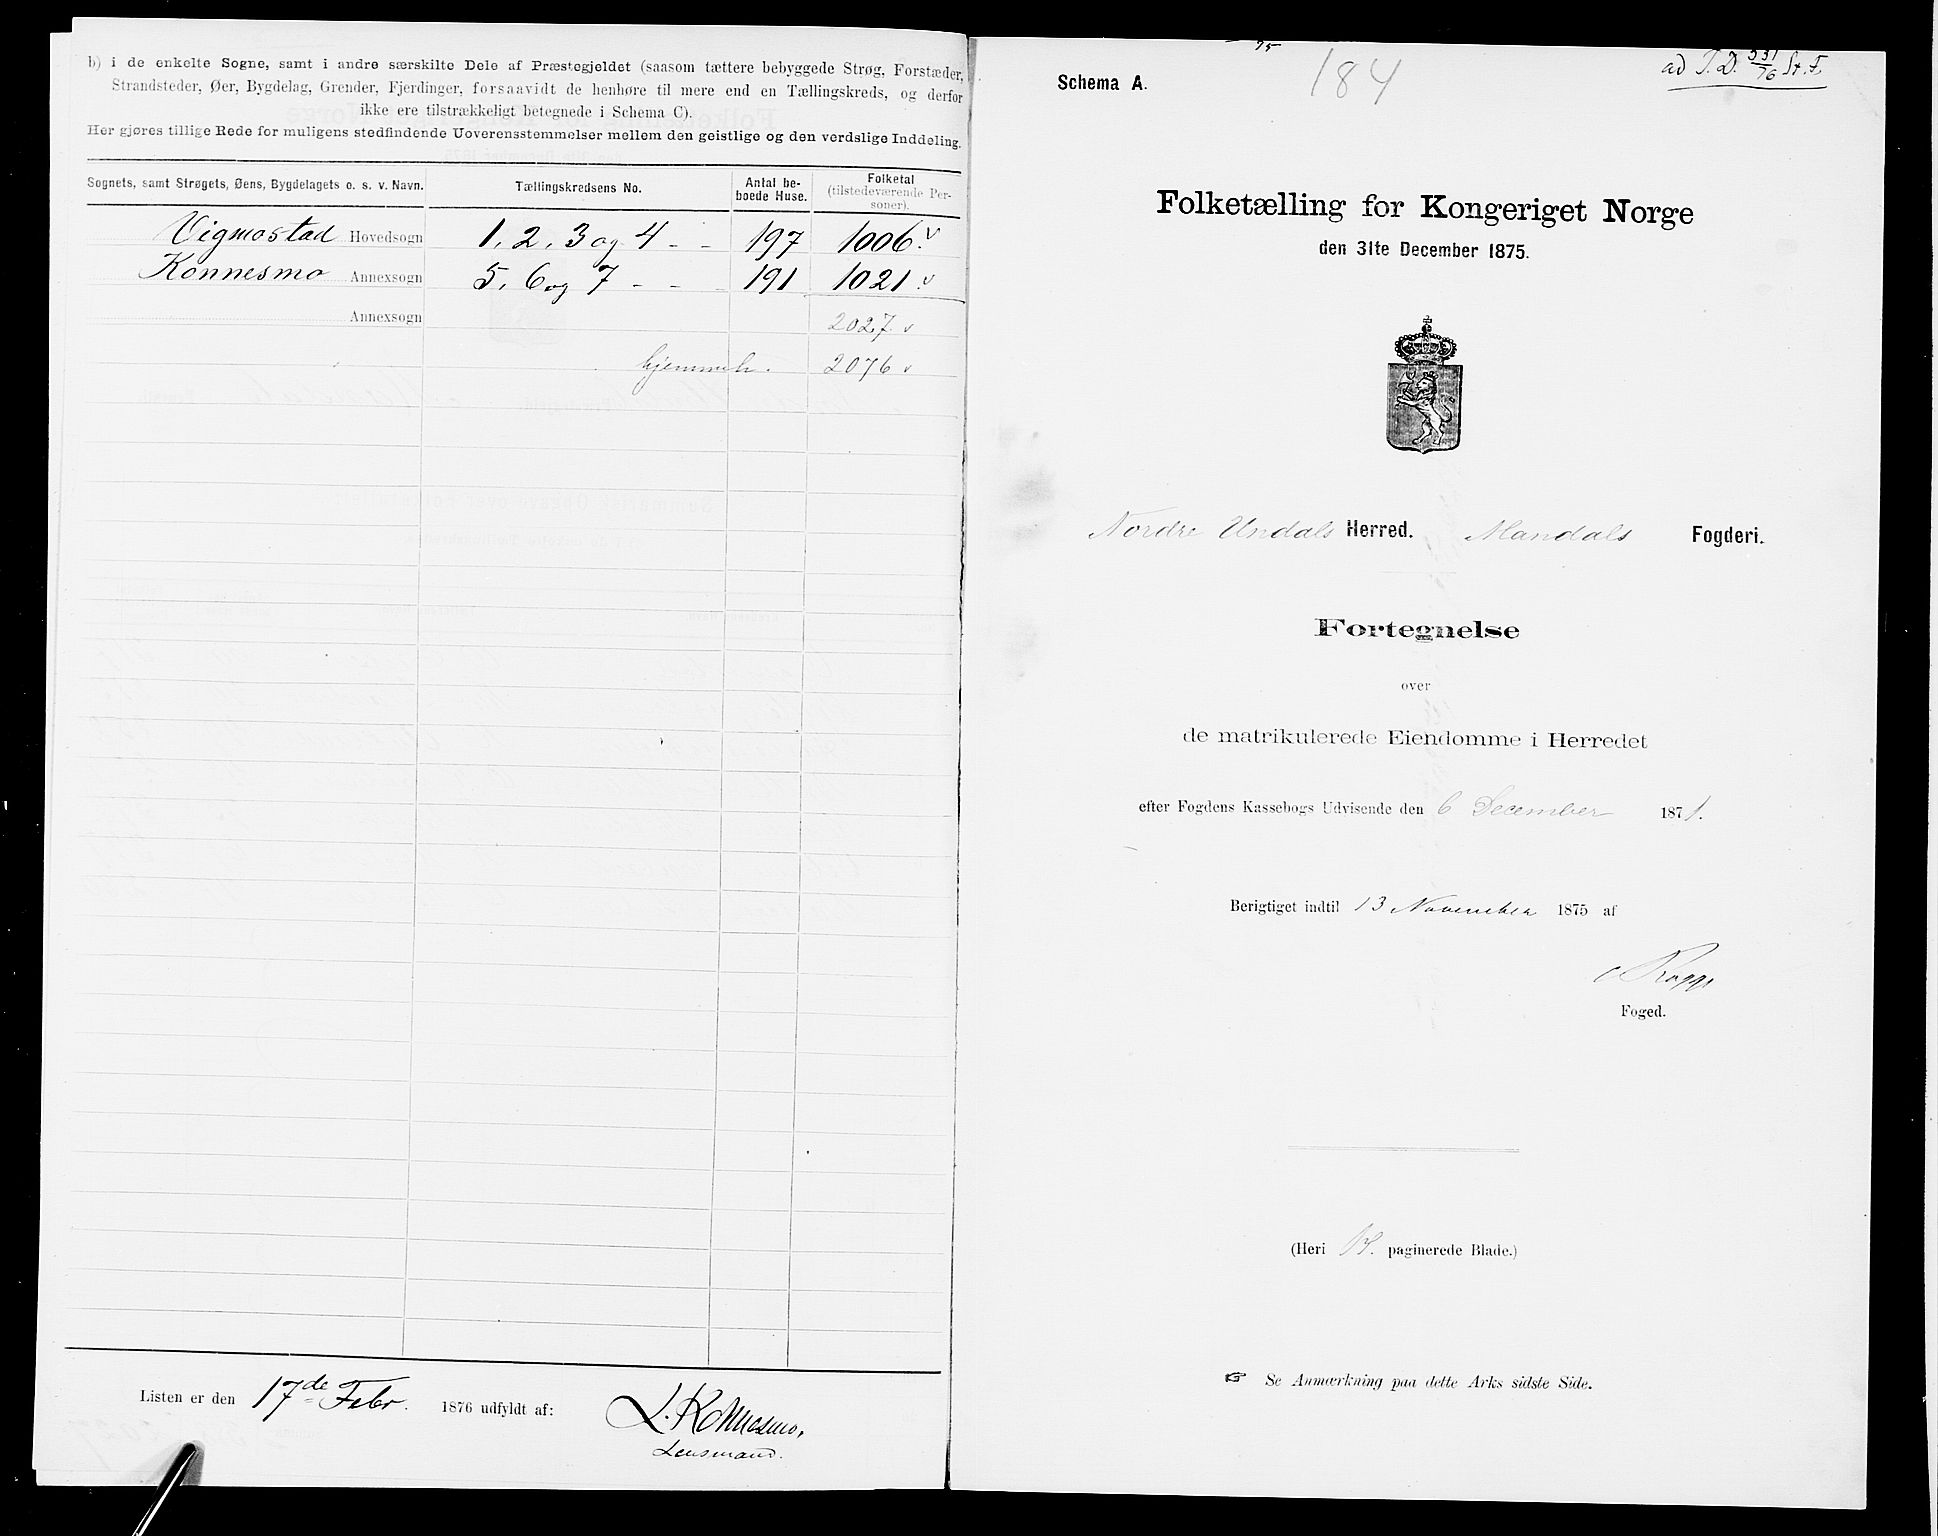 b) i de enkelte Sogne, samt i andre særskilte Dele af Præstegjeldet (saasom tættere bebyggede Strøg, Forstæder,
Strandsteder, Øer, Bygdelag, Grender, Fjerdinger, forsaavidt de henhøre til mere end en Tællingskreds, og derfor
ikke ere tilstrækkeligt betegnede i Schema C).
Her gjøres tillige Rede for muligens stedfindende Uoverensstemmelser mellem den geistlige og den verdslige Inddeling.
Sognets, samt Strøgets, Øens, Bygdelagets o. s. v. Navn. Tællingskredsens No. Antal beboede Huse. Folketal (tilstedeværende Personer).
Vigmostad Hovedsogn 1, 2, 3 og 4 - - 197 1006. v
Konnesmo Annexsogn 5, 6 og 7 - - 191 1021. v
Annexsogn 2027 v
hjemmeh. 2076 v
Listen er den 17de Febr. 1876 udfyldt af:
L. Konnesmo,
Lensmand.
75
Schema A.
184
ad T. D. 331/76 St. F.
Folketælling for Kongeriget Norge
den 31te December 1875.
Nordre Undals Herred. Mandals Fogderi.
Fortegnelse
over
de matrikulerede Eiendomme i Herredet
efter Fogdens Kassebogs Udvisende den 6 December 1871.
Berigtiget indtil 13 November 1875 af
Foged.
(Heri paginerede Blade.)
☞ Se Anmærkning paa dette Arks sidste Side.